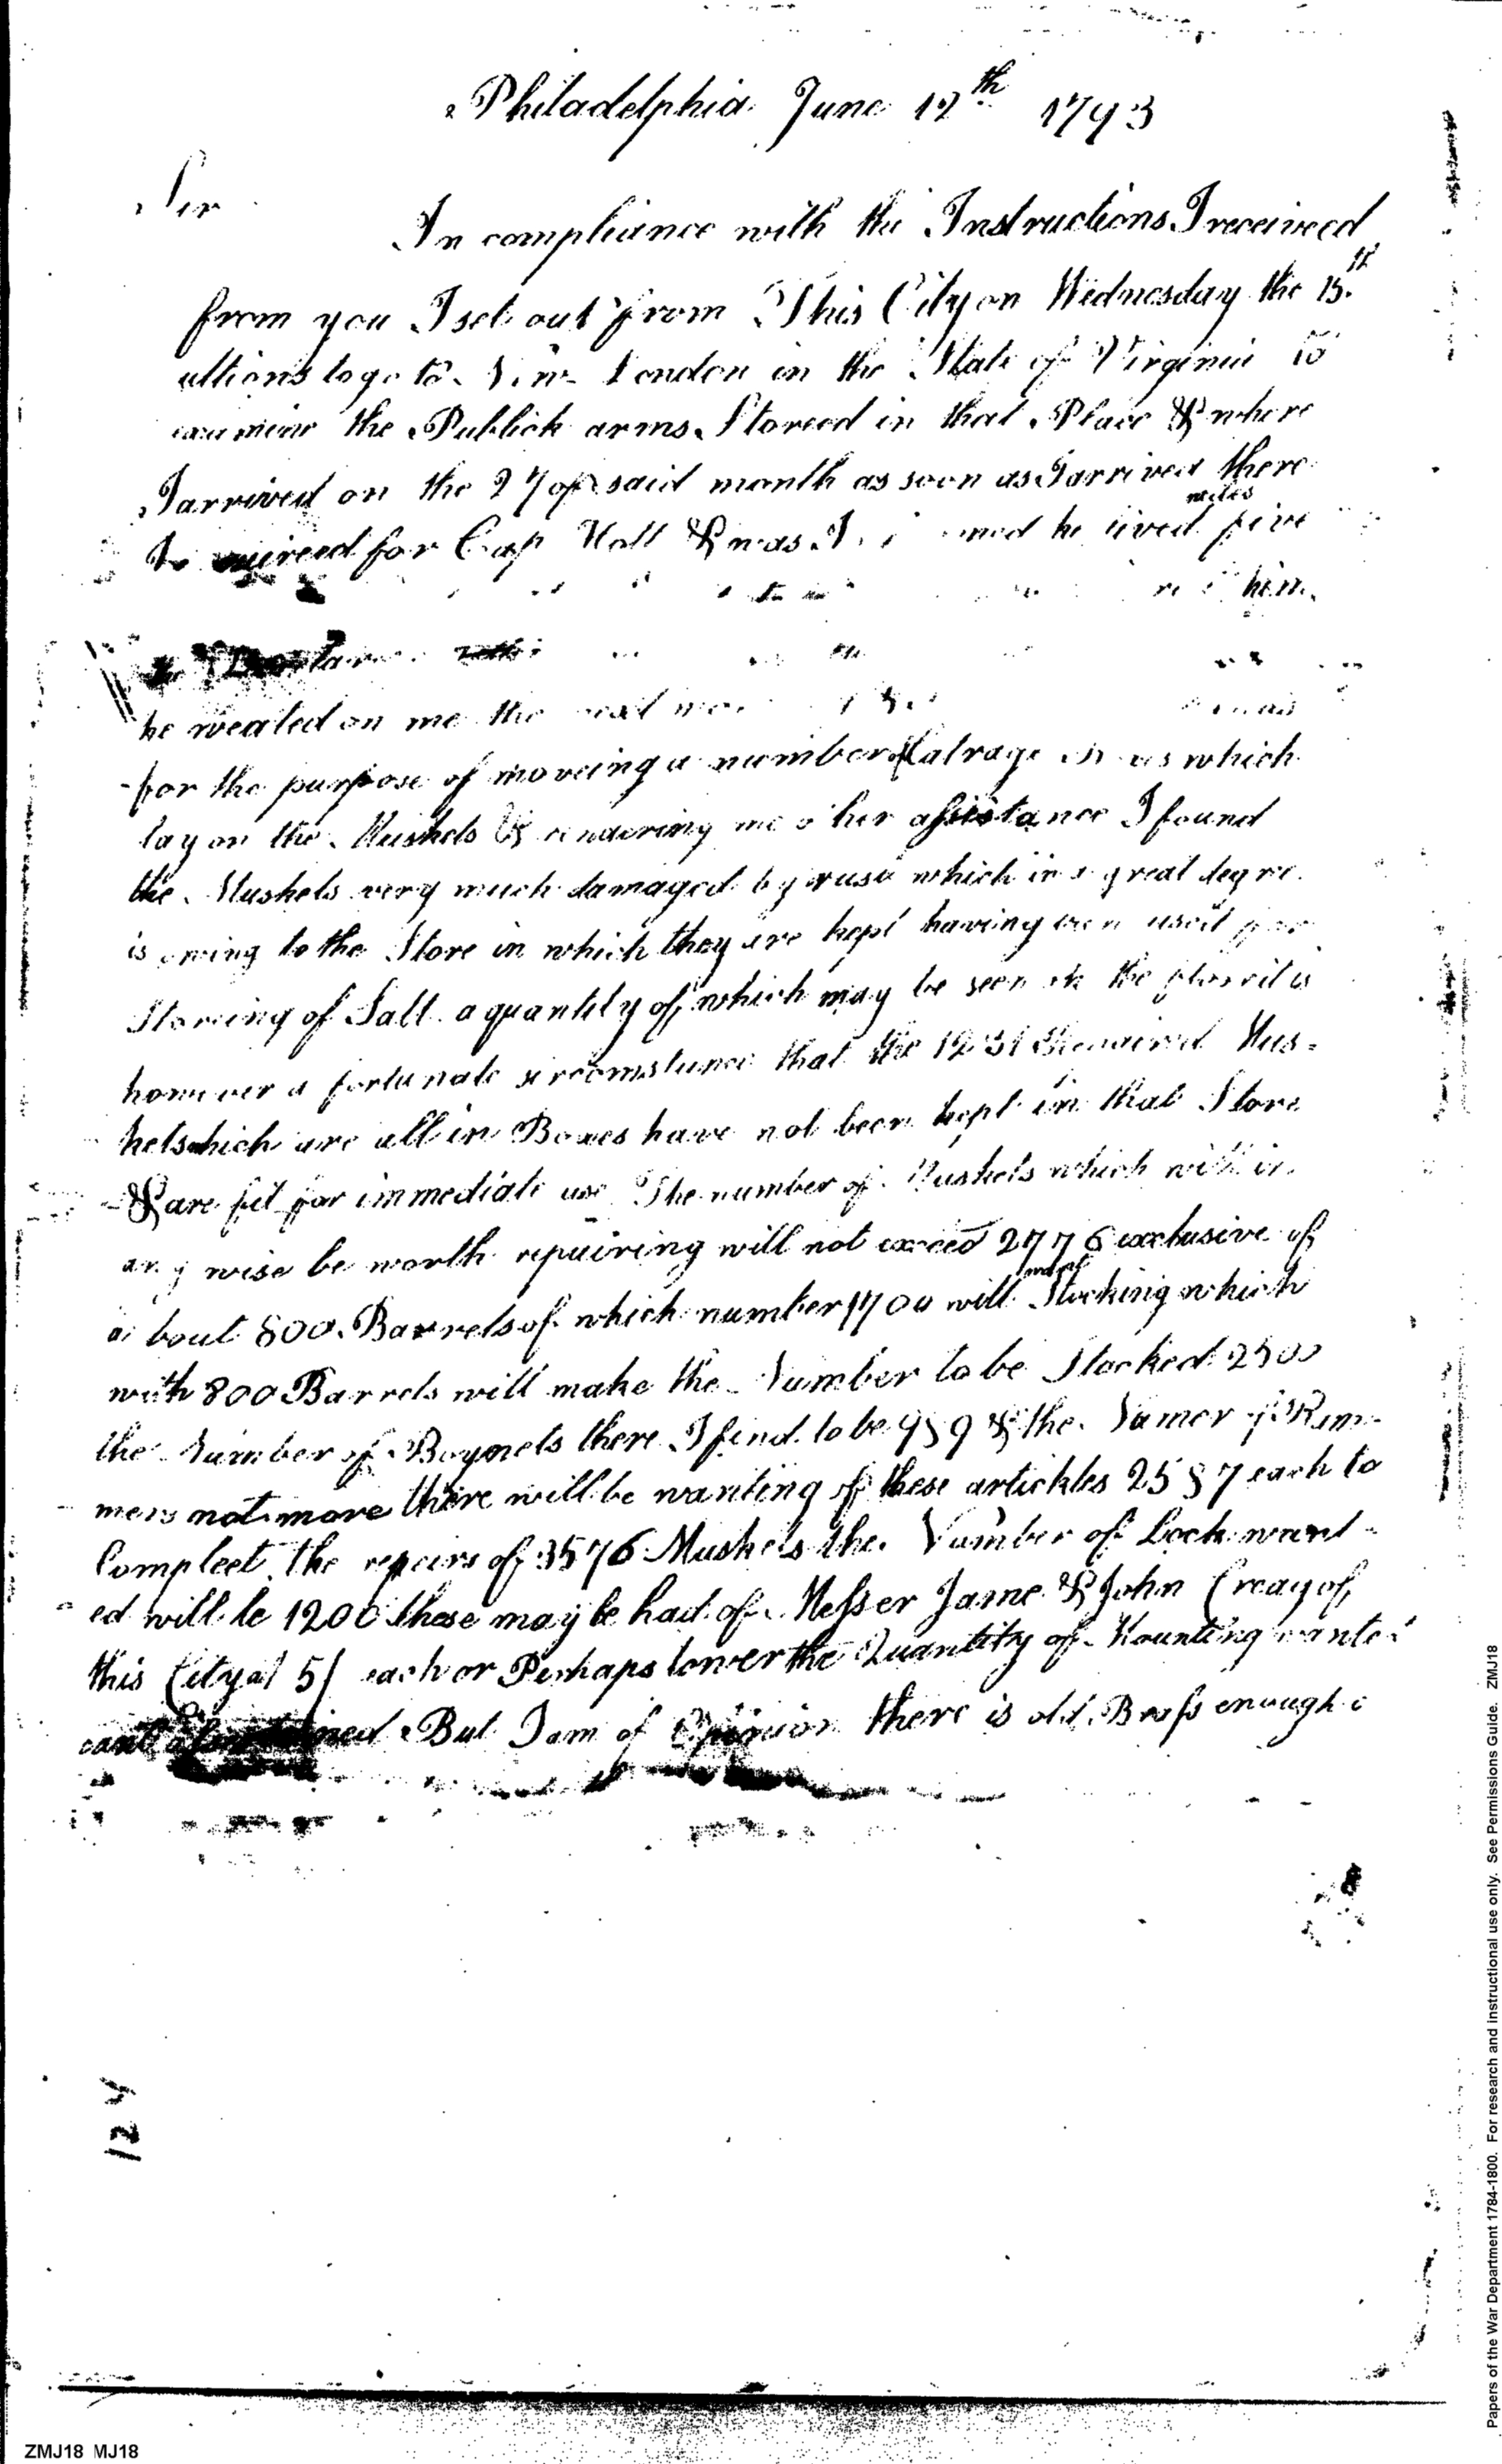 Philadelphia June 12th 1793
Sir
In compliance with the Instructions I receiveed
from you I set out from This City on Wednesday the 15th
ultions to go to New London in the State of Virginia to
examine the Publick arms Storeed in that Place & where
I arrived on the 27 of said month as soon as I arrived there
miles
for Cap Holl & was he lived five
him
he weated on me the next
for the purpose of moveing a number of which
lay on the Muskets & rendering me other assistance I found
the Muskets very much damaged by rust which in a great degre
is owing to the Store in which they are kept having been used for
Storeing of Salt a quantity of which may be seen on the floor it is
however a fortunate sircomstance that the 1231 Muskets
ketswhich are all in Boxes have not been kept in that Store
& are fit for immediate use The number of Muskets which will in
any wise be worth repairing will not exceed 2776 exclusive of
about 800 Barrels of which number 1700 will Stocking which
with 800 Barrels will make the Number to be Stocked 2500
the Number of Bayonets there I find to be 989 & the Numer of Ram-
mers not more there will be wanting of these artickles 2587 each to
Compleet the repairs of 3576 Muskets the Number of Lock want-
ed will be 1200 these may be had of Messer Jame & John Creay of
this City at 5/ each or Perhaps lower the Quantity of Mounting wanted
cant But I am of Opinion there is old Brass enough
124
ZMJ18 MJ18
Papers of the War Department 1784-1800. For research and instructional use only. See Permissions Guide. ZMJ18